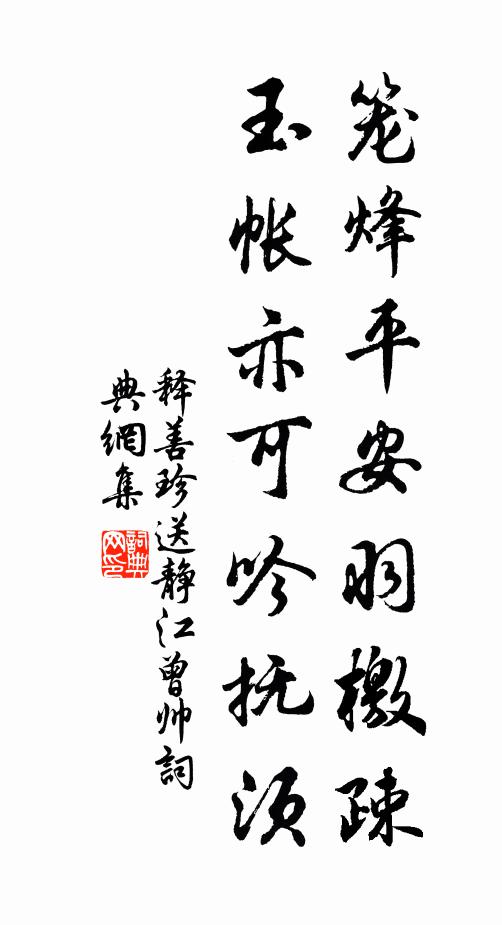 笼烽平安羽檄疎
玉帐亦可吟抚须
释善珍送静江曾帅詞
典網集
詞典网印